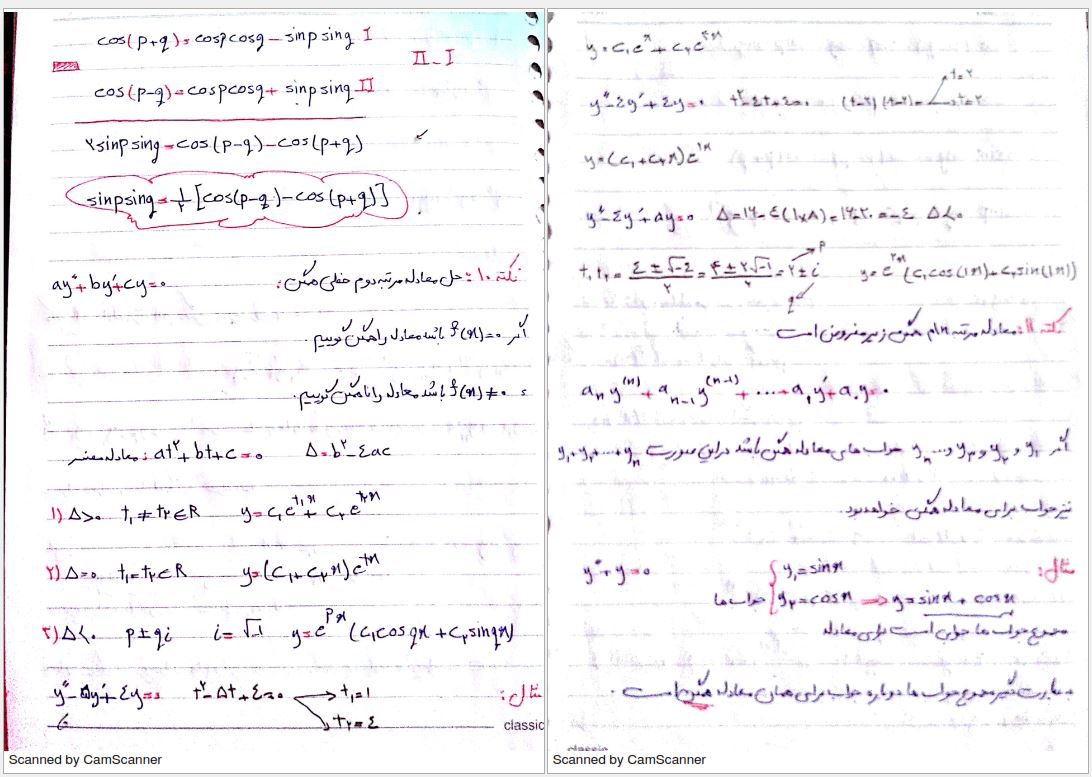 cos(p+q)=cospcosq - sinp sinq I
II - I
cos(p-q)=cospcosq + sinp sinq II
۲sinp sinq = cos(p-q) - cos(p+q)
sinpsinq = ۱/۲ [cos(p-q) - cos(p+q)]
نکته ۱۰: حل معادله مرتبه دوم خطی همگن: ay″+by′+cy=۰
اگر f(x)=۰ باشد معادله را همگن گوییم.
و f(x)≠۰ باشد معادله را ناهمگن گوییم.
معادله مفسر: at²+bt+c=۰ Δ=b²-۴ac
۱) Δ>۰ t₁≠t₂∈R y=c₁e^{t₁x}+c₂e^{t₂x}
۲) Δ=۰ t₁=t₂∈R y=(c₁+c₂x)e^{tx}
۳) Δ<۰ p±qi i=√-۱ y=e^{px}(c₁cosqx+c₂sinqx)
مثال: y″-۵y′+۴y=۰ t²-۵t+۴=۰ t₁=۱
t₂=۴
classic
Scanned by CamScanner
y=c₁e^{x}+c₂e^{۴x}
y″-۴y′+۴y=۰ t²-۴t+۴=۰ (t-۲)(t-۲)=۰ t=۲
t=۲
y=(c₁+c₂x)e^{۲x}
y″-۴y′+۵y=۰ Δ=۱۶-۴(۱×۵)=۱۶-۲۰=-۴ Δ<۰
t₁,t₂=(۴±√-۴)/۲=(۴±۲√-۱)/۲=۲±i p q y=e^{۲x}(c₁cos(1x)+c₂sin(1x))
نکته ۱۱: معادله مرتبه n ام همگن زیر مفروض است
aₙy⁽ⁿ⁾+aₙ₋₁y⁽ⁿ⁻¹⁾+....+a₁y′+a₀y=۰
اگر y₁ و y₂ و y₃ و ... yₙ جواب های معادله همگن باشد در این صورت y₁+y₂+...+yₙ
نیز جواب برای معادله همگن خواهد بود.
مثال: y″+y=۰ y₁=sinx
جواب ها y₂=cosx ⟹ y=sinx+cosx
مجموع جواب ها جوابی است برای معادله
به عبارت دیگر مجموع جواب ها دوباره جواب برای همان معادله همگن است.
classic
Scanned by CamScanner